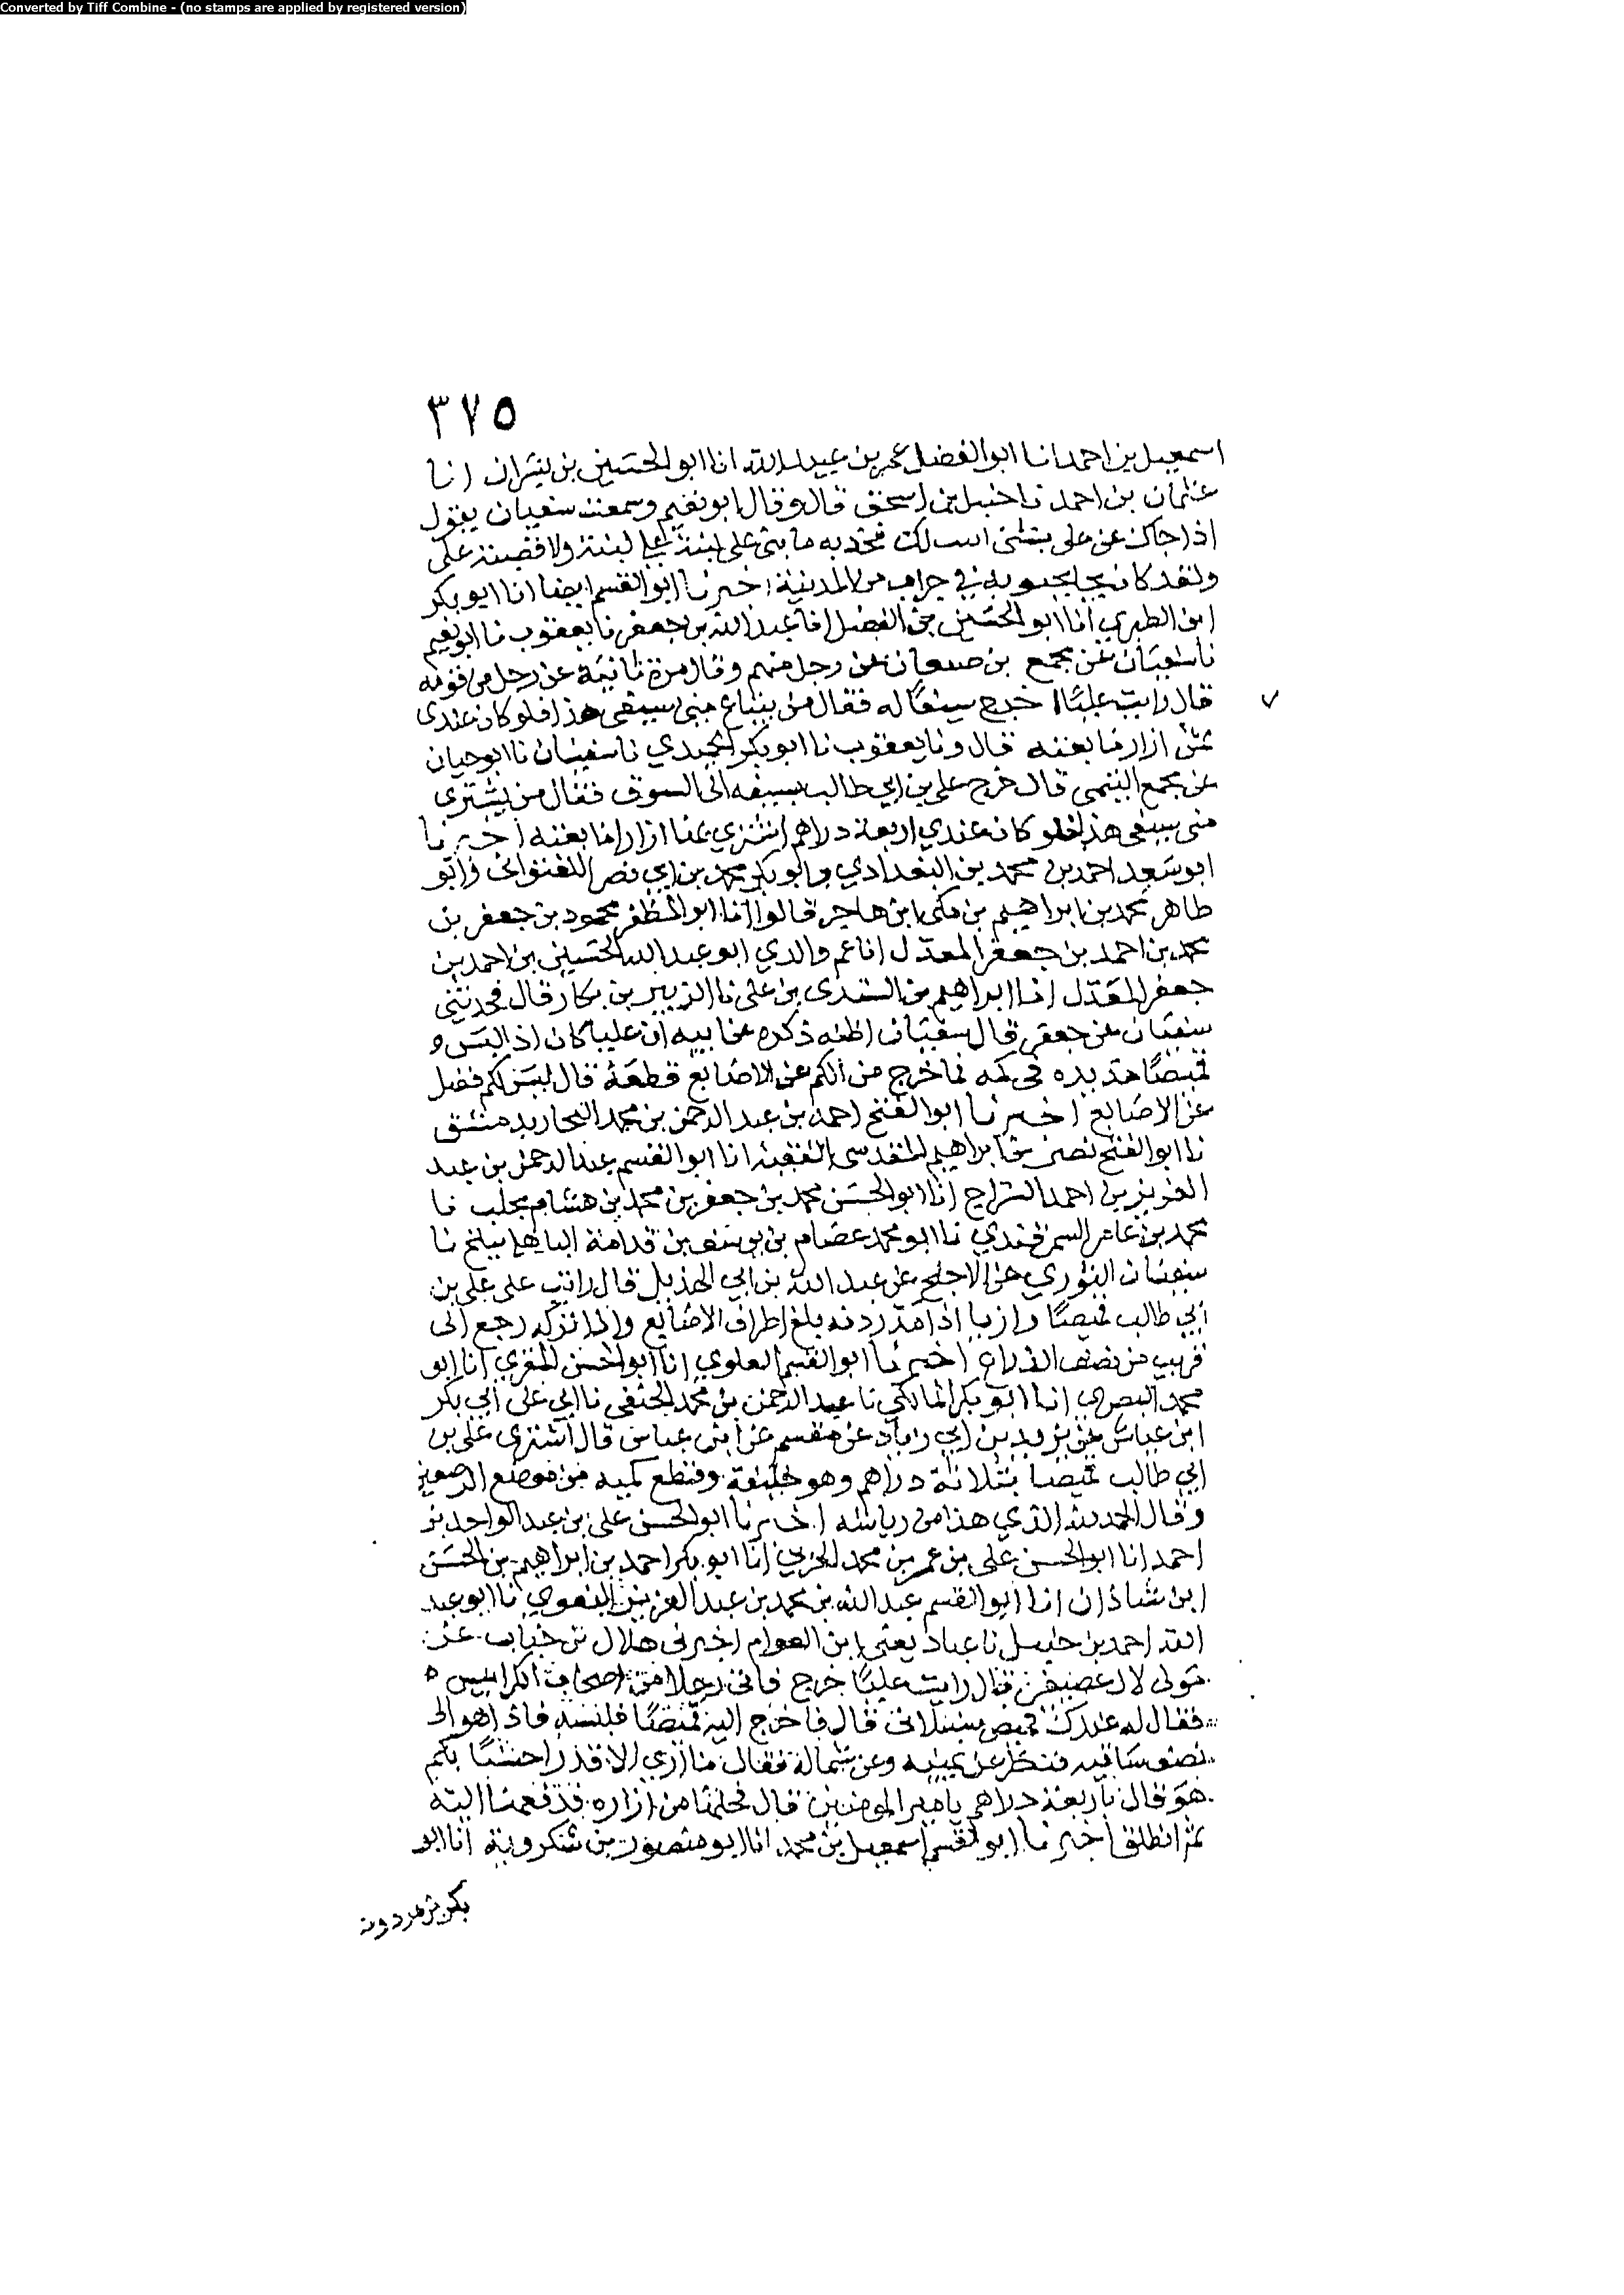 Converted by Tiff Combine - (no stamps are applied by registered version)
٣٧٥
اسمعيل بن احمد انا ابو الفضل عمر بن عبيد الله انا ابو الحسين بن بشران انا
عثمان بن احمد نا حنبل بن اسحق قال وقال ابو نعيم وسمعت سفيان يقول
اذا جاك عن على بشى فخذ به ما بنى على لبنة على لبنة ولا قصبة على
ولقد كان يجا بجبوبه فى جراب من المدينة اخبرنا ابو القسم ايضا انا ابو بكر
ابن الطبري انا ابو الحسين بن الفضل انا عبد الله بن جعفر نا يعقوب نا ابو نعيم
نا سفيان عن مجمع بن صمعان عن رجل منهم وقال مرة ثانية عن رجل من قومه
قال رايت عليا خرج سيفا له فقال من يبتاع منى سيفى هذا فلو كان عندى
ثمن ازار ما بعته قال ونا يعقوب نا ابو بكر الحميدي نا سفيان نا ابو حيان
عن مجمع التيمى قال خرج على بن ابي طالب بسيفه الى السوق فقال من يشترى
منى سيفى هذا فلو كان عندي اربعة دراهم اشتري بها ازارا ما بعته اخبرنا
ابو سعد احمد بن محمد بن البغدادي وابو بكر محمد بن ابي نصر اللفتوانى وابو
طاهر محمد بن ابراهيم بن مكى ابن هاجر قالوا انا ابو المظفر محمود بن جعفر بن
محمد بن احمد بن جعفر المعدل انا عم والدي ابو عبد الله الحسين بن احمد بن
جعفر المعدل انا ابراهيم بن السندى بن على نا الزبير بن بكار قال فحدثنى
سفيان عن جعفر قال سفيان اظنه ذكره عن ابيه ان عليا كان اذا لبس
قميصا مد يده فى كمه فما خرج من الكم عن الاصابع قطعه قال ليس لكم فضل
عن الاصابع اخبرنا ابو الفتح احمد بن عبد الرحمن بن محمد النجار بدمشق
نا ابو الفتح نصر بن ابراهيم المقدسى الفقيه انا ابو القسم عبد الرحمن بن عبد
العزيز بن احمد السراج انا ابو الحسن محمد بن جعفر بن محمد بن هشام بحلب نا
محمد بن عامر السمرقندي نا ابو محمد عصام بن يوسف بن قدامة الباهلى ببلخ نا
سفيان الثوري عن الاجلح عن عبد الله بن ابي الهذيل قال رايت على على بن
ابي طالب قميصا رازيا اذا مد ردنه بلغ اطراف الاصابع واذا تركه رجع الى
قريب من نصف الذراع اخبرنا ابو القسم العلوي انا ابو الحسن المقري انا ابو
محمد البصرى انا ابو بكر المالكي نا عبد الرحمن بن محمد الحنفى نا ابي عن ابي بكر
ابن عياش عن يزيد بن ابي زياد عن مقسم عن ابن عباس قال اشترى على بن
ابي طالب قميصا بثلاثة دراهم وهو خليفة وقطع كميه من موضع الرصغين
وقال الحمد لله الذي هذا من رياشه اخبرنا ابو الحسن على بن عبد الواحد بن
احمد انا ابو الحسن على بن عمر بن محمد الحربي انا ابو بكر احمد بن ابراهيم بن الحسن
ابن شاذان انا ابو القسم عبد الله بن محمد بن عبد العزيز البغوي نا ابو عبد
الله احمد بن حنبل نا عباد يعنى ابن العوام اخبرنى هلال بن خباب عن
مولى لال عصيفر قال رايت عليا خرج فاتى رجلا من اصحاب الكرابيس
فقال له عندك قميص سنبلانى قال فاخرج اليه قميصا فلبسه فاذا هو الى
نصف ساقيه فنظر عن يمينه وعن شماله فقال ما ارى الا قدرا حسنا بكم
هو قال باربعة دراهم يا امير المومنين قال فحلها من ازاره فدفعها اليه
ثم انطلق اخبرنا ابو القسم اسمعيل بن محمد انا ابو منصور بن شكرويه انا ابو
بكر بن مردويه